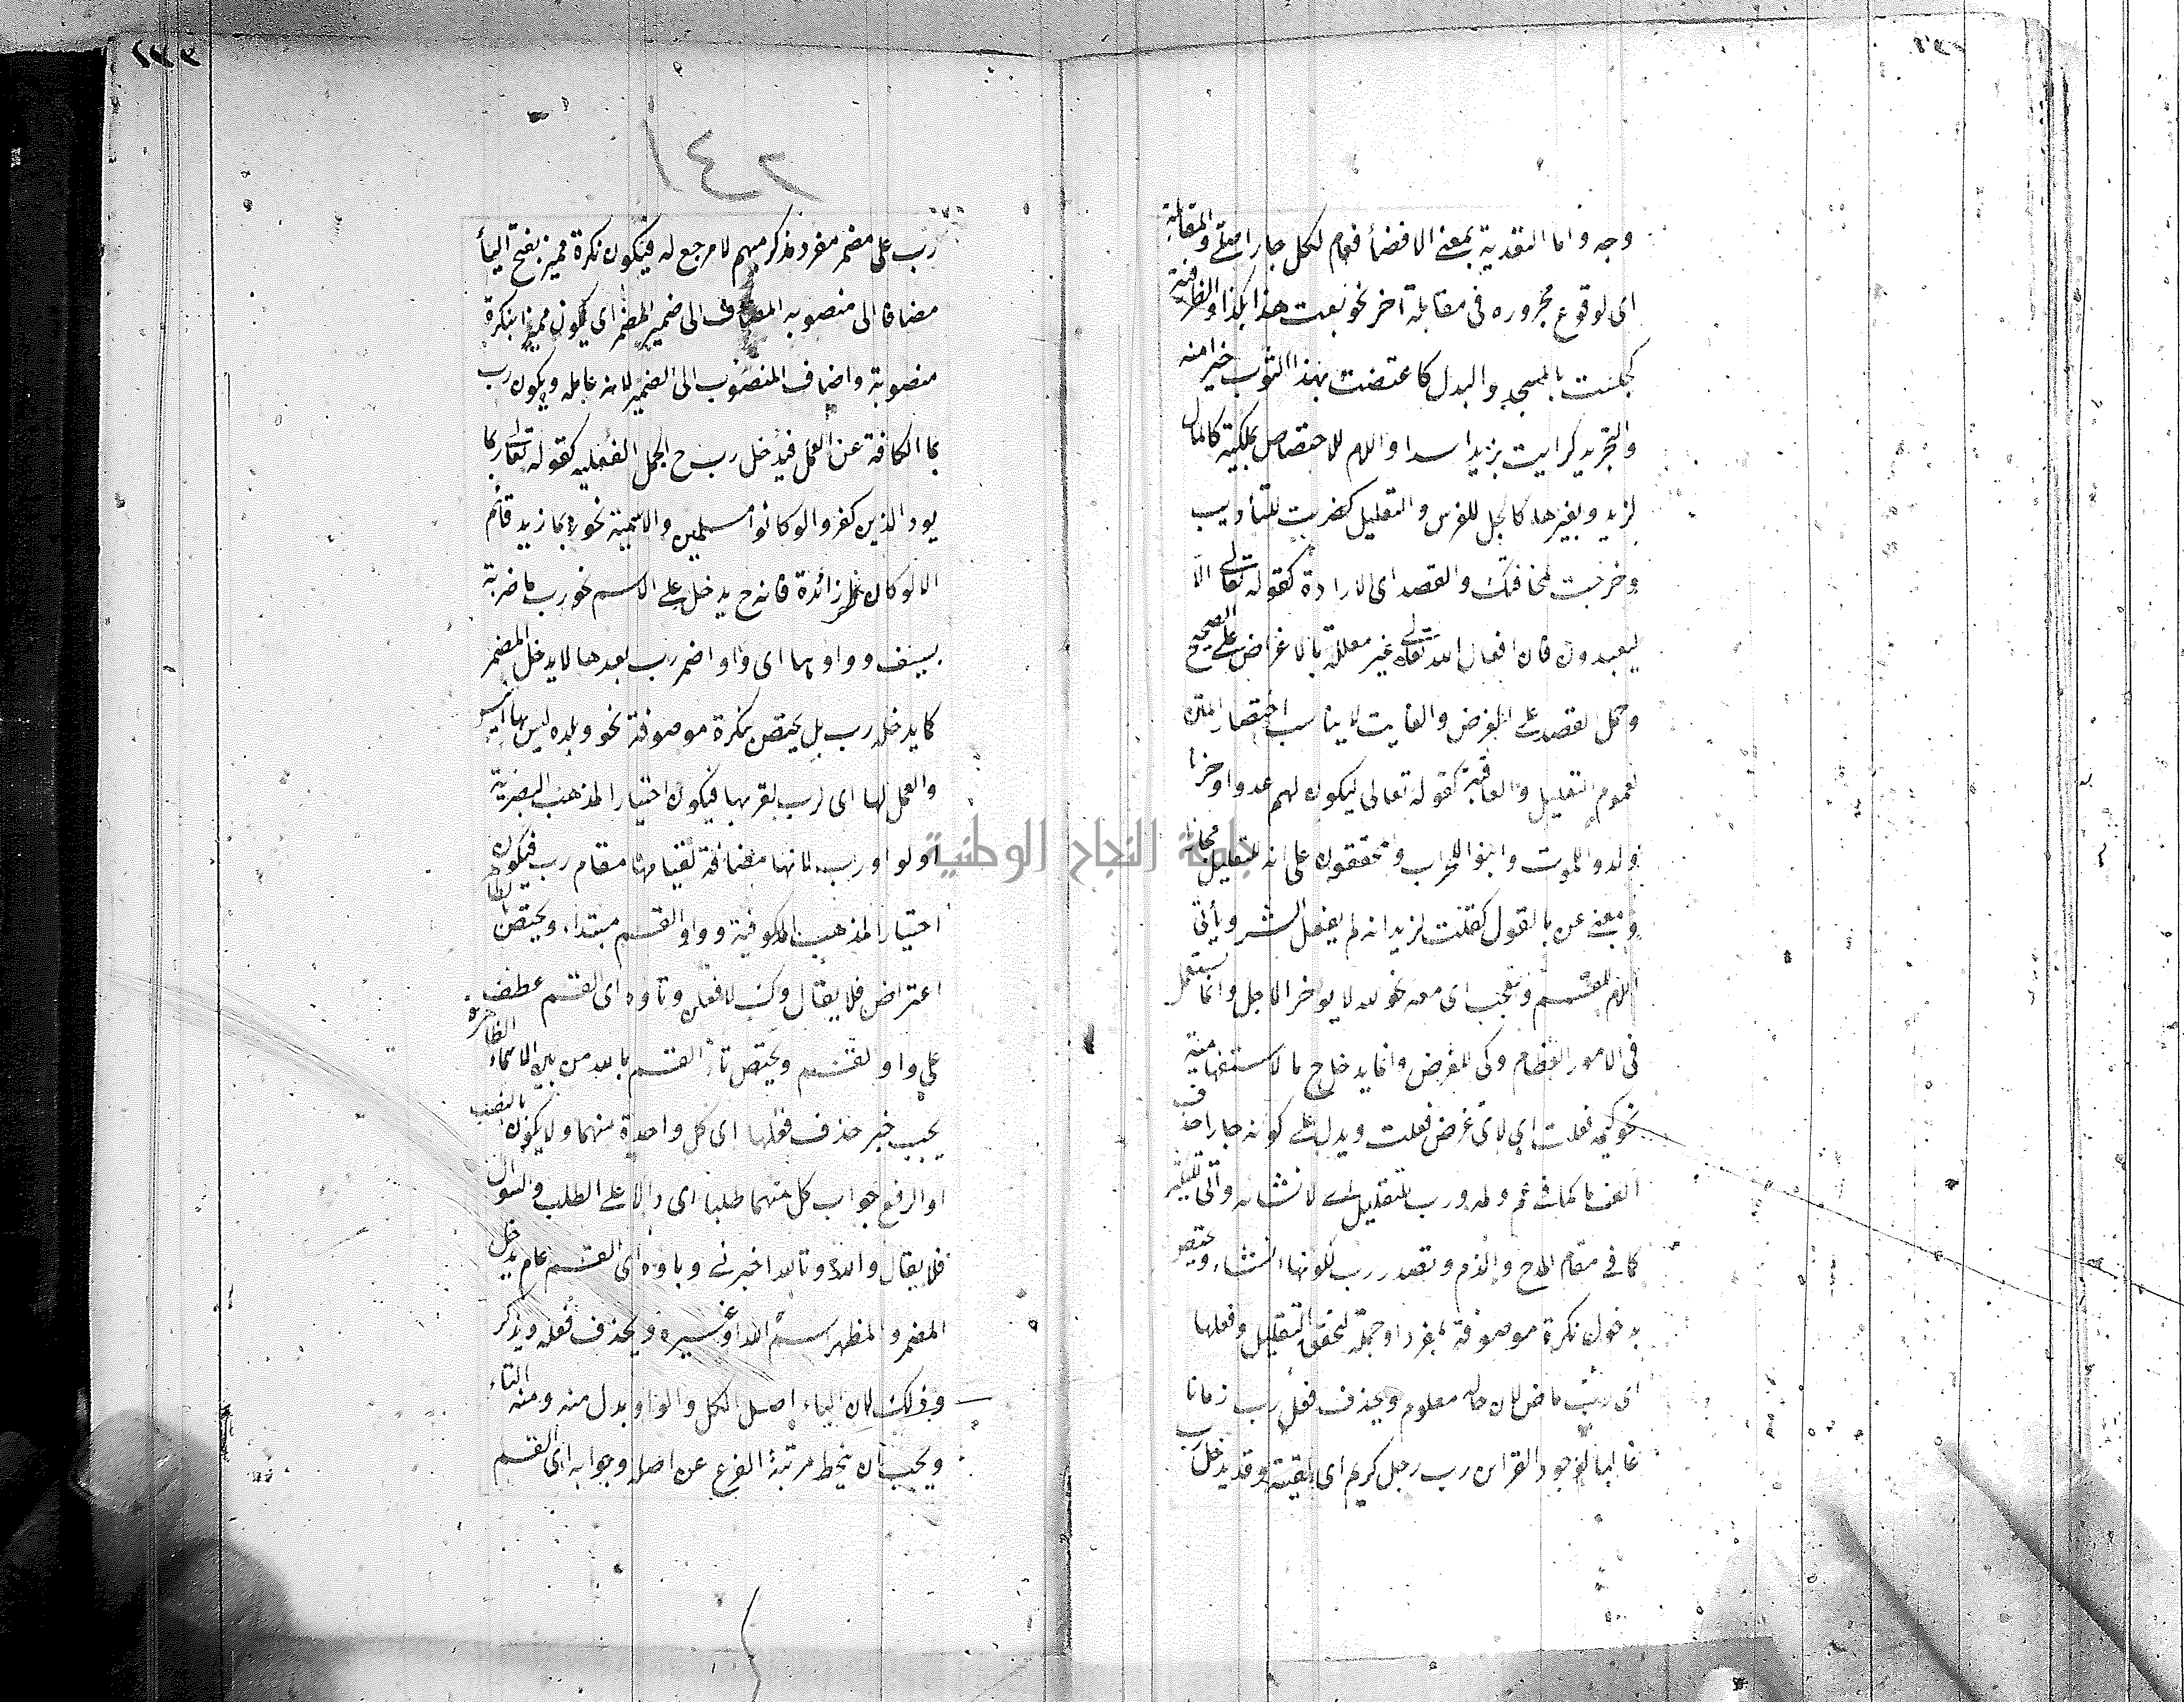 وجه واما التعدية بمعنى الافضاء فعام لكل جار اصلى والمقابلة
اى لوقوع مجروره فى مقابلة آخر نحو بعت هذا بكذا والظرفية
كجلست بالمسجد والبدل كاعتضت بهذا الثوب خيرا منه
والتجريد كرايت بزيد اسدا واللام للاختصاص بملكية كالمال
لزيد وبغيرها كالجل للفرس والتعليل كضربت للتأديب
وخرجت لمخافتك والقصد اى الارادة كقوله تعالى الا
ليعبدون فان افعال الله تعالى غير معللة بالاغراض على الصحيح
وحمل القصد على الغرض والغايت لا يناسب اختصار المتن
لعموم التعليل والعاقبة كقوله تعالى ليكون لهم عدوا وحزنا
ولدوا للموت وابنوا للخراب ومحققون على انه للتعليل مجازا
وبمعنى عن بالقول كقلت لزيد انه لم يفعل الشر ويأتى
اللام للقسم وتعجب اى معه نحو لله لا يوخر الاجل وانما يستعمل
فى الامور العظام وكى للغرض وانما يدخل ح ما الاستفهامية
نحو كيمه فعلت اى لاى غرض فعلت ويدل على كونه جارا حذف
الف ما كما فى عم ولم ورب للتقليل اى لانشائه وأتى للتكثير
كما فى مقام المدح والذم وتصدر رب لكونها انشاء ويختص
بدخول نكرة موصوفة بمفرد او جملة لتحقق التقليل وفعلها
اى رب ماض لان حاله معلوم ويحذف فعل رب زمانا
غالبا لوجود القراين رب رجل كريم اى لقيته وقد يدخل رب
رب على مضمر مفرد مذكر مبهم لا مرجع له فيكون نكرة مميز بفتح الياء
مضافا الى منصوبه المضاف الى ضمير المضمر اى يكون مميزا بنكرة
منصوبة واضاف المنصوب الى الضمير لانه عامله ويكون رب
بما الكافة عن العمل فيدخل رب ح الجمل الفعلية كقوله تعالى ربما
يود الذين كفروا لو كانوا مسلمين والاسمية نحو ربما زيد قائم
الا لو كان زائدة فانه ح يدخل على الاسم نحو رب ما ضربة
بسيف وواوها اى واو اضمر رب بعدها لا يدخل المضمر
كما يدخله رب بل يختص بنكرة موصوفة نحو وبلدة ليس بها انيس
والعمل لها اى لرب لقربها فيكون اختيارا لمذهب البصرية
او لواو رب لانها مضافة لقيامها مقام رب فيكون
اختيارا لمذهب الكوفية وواو القسم مبتداء ويختص
اعتراض فلا يقال وك لافعلن وتاوه اى القسم عطف
على واو القسم ويختص تاء القسم بالله من بين الاسماء الظاهرة
يجب خبر حذف فعلها اى كل واحدة منهما ولا يكون بالنصب
او الرفع جواب كل منهما طلبا اى دالا على الطلب والسوال
فلا يقال والله وتالله اخبرنى وباوه اى القسم عام يدخل
المضمر والمظهر اسم الله او غيره ويحذف فعله ويذكر
وذلك لان الباء اصل الكل والواو بدل منه ومنه التاء
ويجب ان ينحط مرتبة الفرع عن اصله وجوابه اى القسم